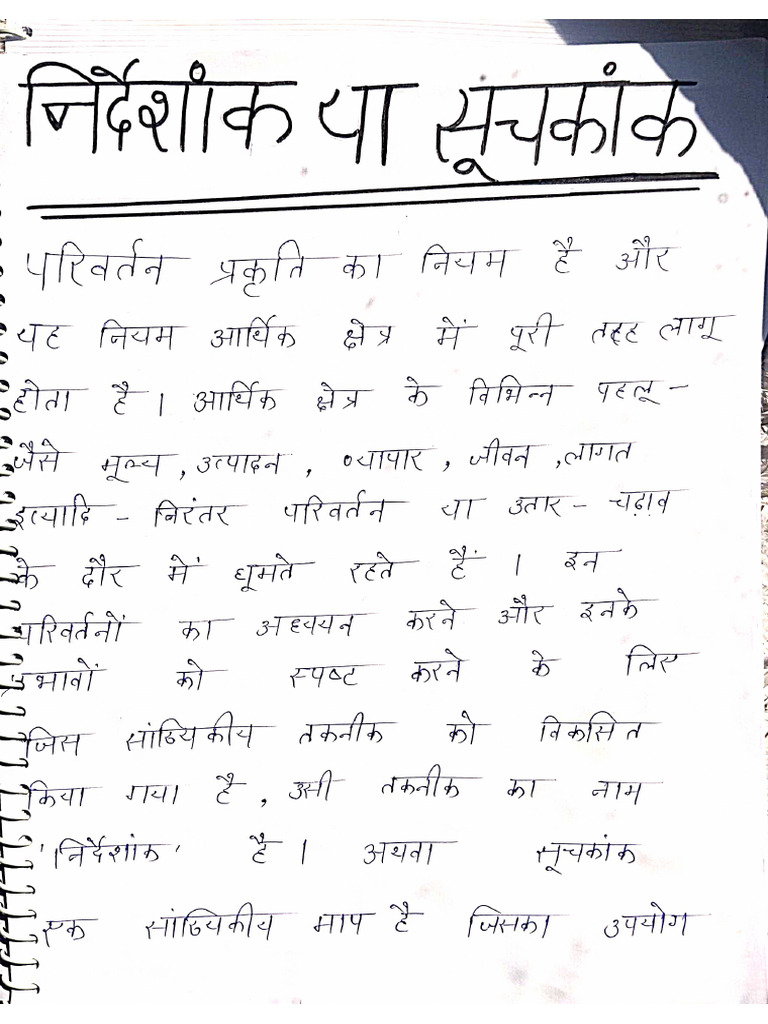 निर्देशांक या सूचकांक
परिवर्तन प्रकृति का नियम है और
यह नियम आर्थिक क्षेत्र में पूरी तरह लागू
होता है । आर्थिक क्षेत्र के विभिन्न पहलू -
जैसे मूल्य , उत्पादन , व्यापार , जीवन , लागत
इत्यादि - निरंतर परिवर्तन या उतार - चढ़ाव
के दौर में घूमते रहते हैं । इन
परिवर्तनों का अध्ययन करने और इनके
प्रभावों को स्पष्ट करने के लिए
जिस सांख्यिकीय तकनीक को विकसित
किया गया है , उसी तकनीक का नाम
'निर्देशांक' है । अथवा सूचकांक
एक सांख्यिकीय माप है जिसका उपयोग